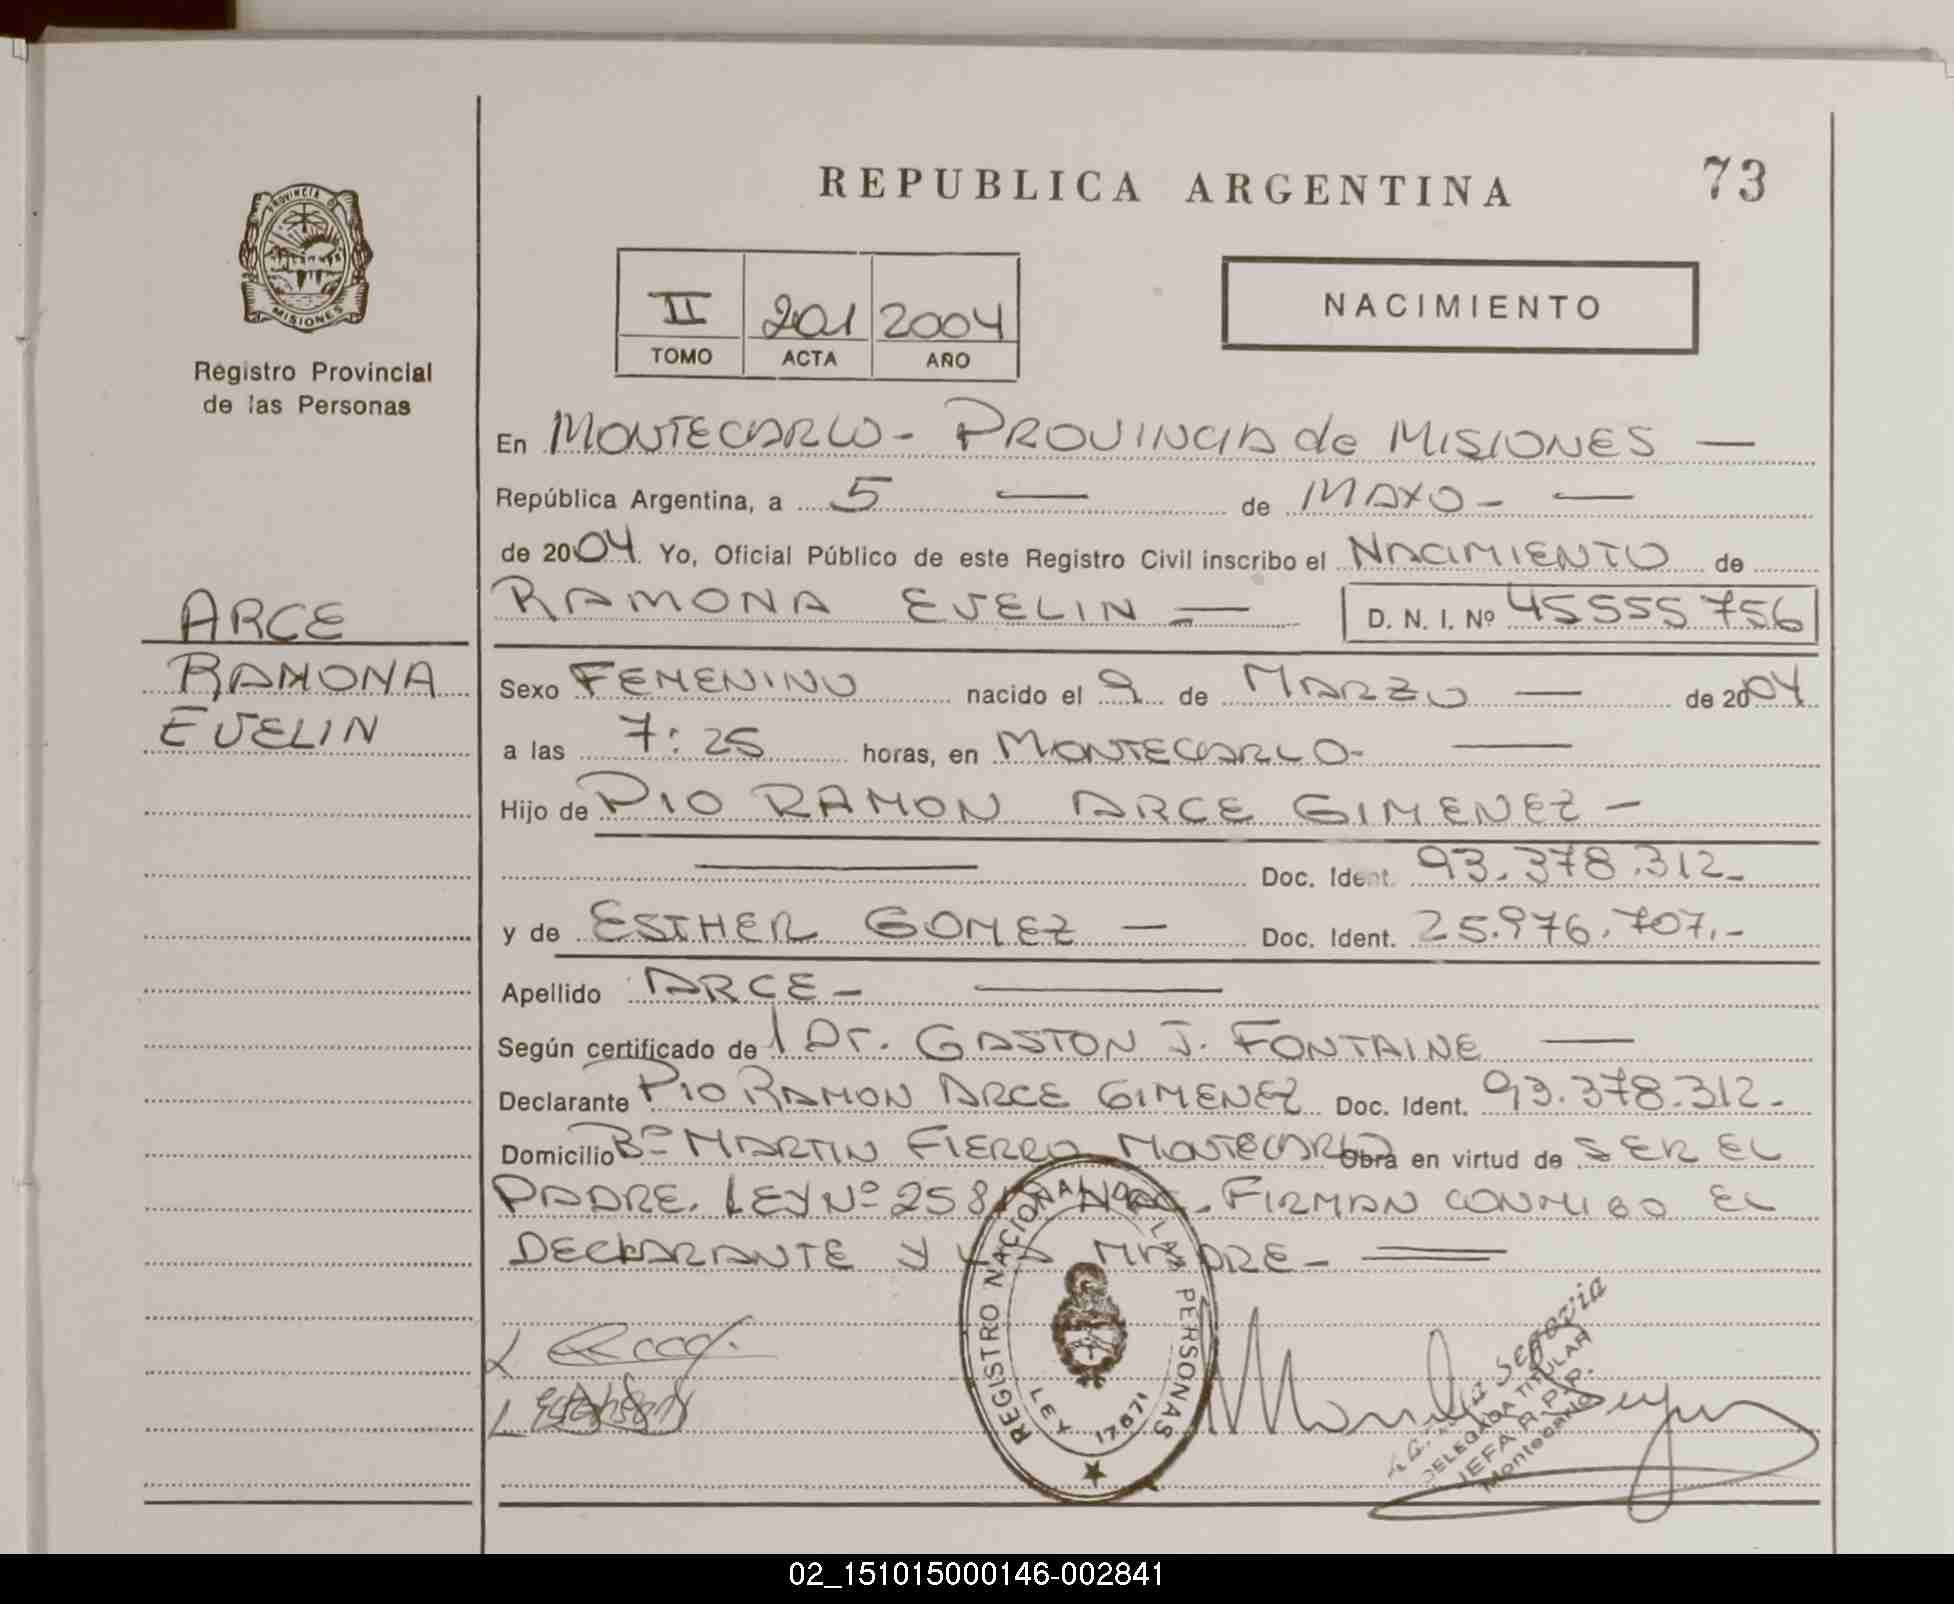 REPUBLICA ARGENTINA
73
PROVINCIA DE
MISIONES
Registro Provincial
de las Personas
II 201 2004
TOMO ACTA AÑO
NACIMIENTO
En MONTECARLO - PROVINCIA de MISIONES —
República Argentina, a 5 — de MAYO - —
de 2004 Yo, Oficial Público de este Registro Civil inscribo el NACIMIENTO de
RAMONA EVELIN — D. N. I. Nº 45555756
ARCE
RAMONA
EVELIN
Sexo FEMENINO nacido el 9 de MARZO — de 2004
a las 7:25 horas, en MONTECARLO- —
Hijo de PIO RAMON ARCE GIMENEZ —
— Doc. Ident. 93.378.312-
y de ESTHER GOMEZ — Doc. Ident. 25.976.707.-
Apellido ARCE - —
Según certificado de 1 Dr. GASTON J. FONTAINE —
Declarante PIO RAMON ARCE GIMENEZ Doc. Ident. 93.378.312-
Domicilio Bº MARTIN FIERRO MONTECARLO Obra en virtud de SER EL
PADRE. LEY Nº 258 - FIRMAN CONMIGO EL
DECLARANTE Y LA MADRE - —
REGISTRO NACIONAL DE LAS PERSONAS
LEY 17671
Segovia
DELEGADA TITULAR
JEFA R.P.P.
Montecarlo
02_151015000146-002841